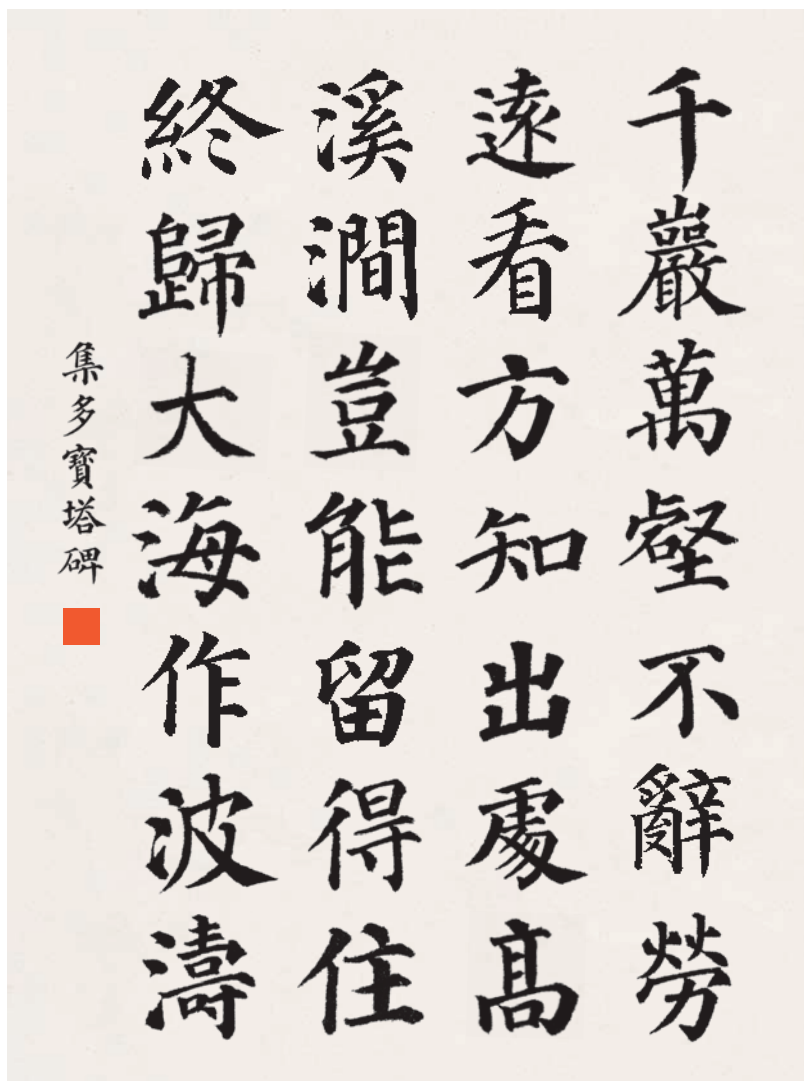 千巖萬壑不辭勞
遠看方知出處高
溪澗豈能留得住
終歸大海作波濤
集多寶塔碑